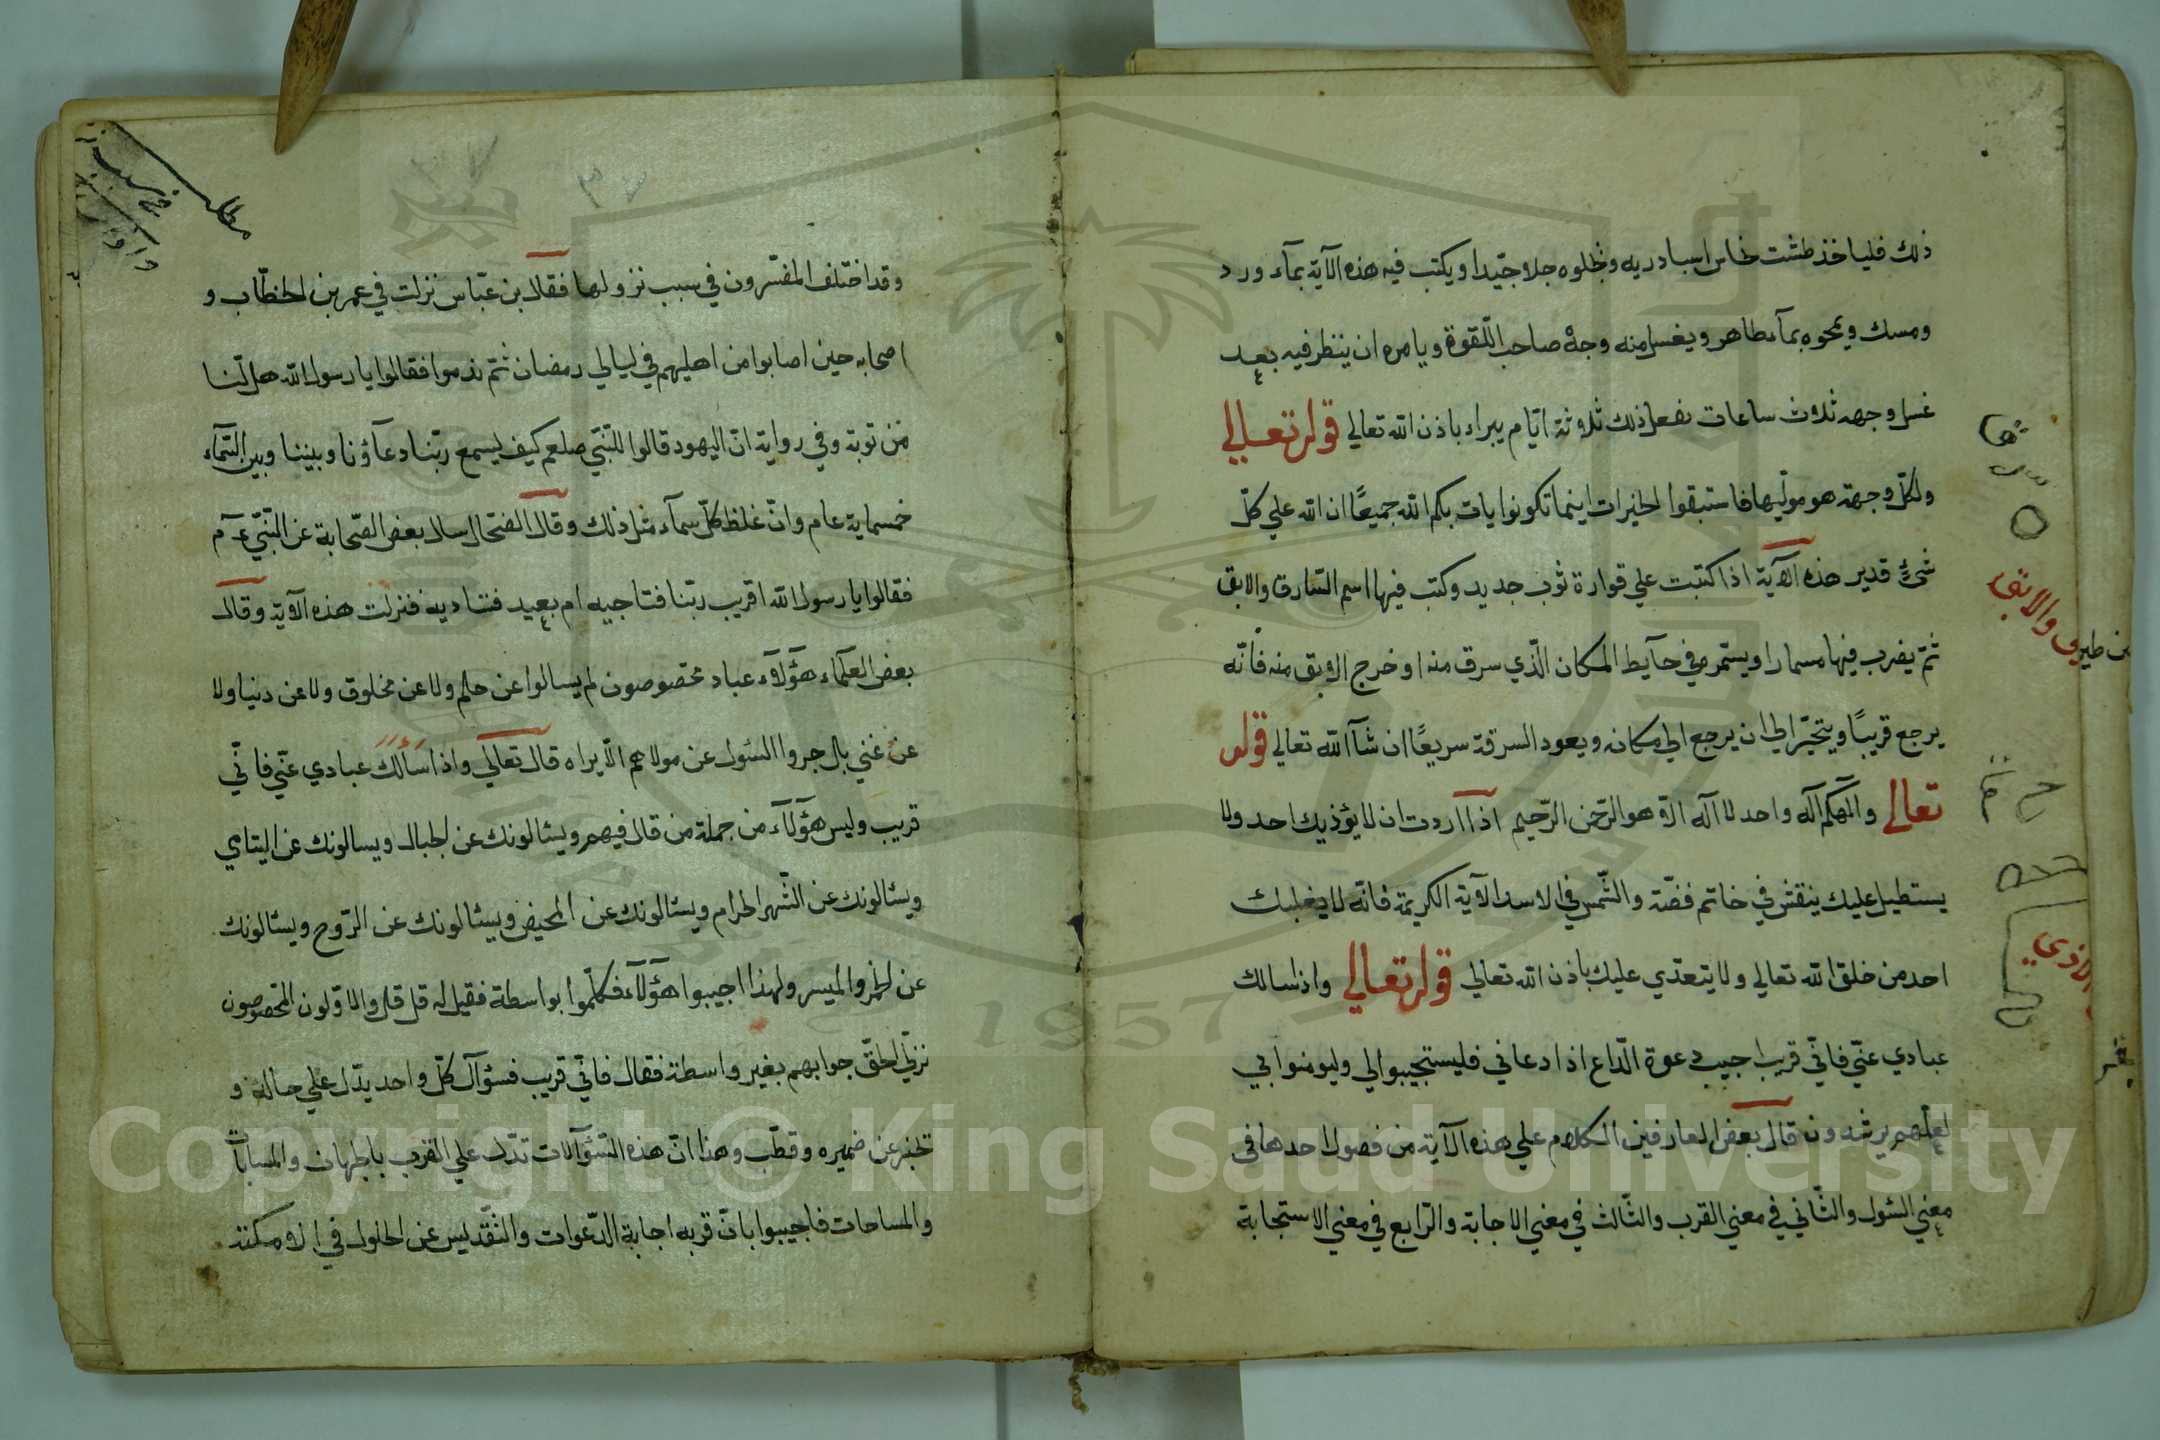 ذلك فليأخذ طشت نحاس اسبادريه وبجلوه جلاو جيّدا ويكتب فيه هذه الآية بمآء ورد
ومسك ويمحوه بمآء طاهر ويغسل منه وجهْ صاحب اللّقوة ويامره ان ينظر فيه بعد
غسل وجهه ثلاث ساعات يفعل ذلك ثلاثة ايّام يبراء باذن الله تعالي قوله تعالي
ولكلّ وجهة هو موليها فاستبقوا الخيرات اينما تكونوا يات بكم الله جميعًا ان الله علي كلّ
شئٍ قدير هذه الآية اذا كتبت علي قوارة ثوب جديد وكتب فيها اسم السّارق والابق
ثمّ يضرب فيها مسمارا ويستمر في حآيط المكان الّذي سرق منه او خرج الابق منه فانّه
يرجع قريبًا ويتحيّر الي ان يرجع الي مكانه ويعود السرقة سريعًا ان شآ الله تعالي قوله
تعالي والهكم اله واحد لا اله الّا هو الرّحمن الرّحيم اذا اردت ان لا يؤذيك احد ولا
يستطيل عليك ينقش في خاتم فضّة والشّمس في الاسد الآية الكريمة فانّه لا يغلبك
احد من خلق الله تعالي ولا يتعدّي عليك باذن الله تعالي قوله تعالي واذا سالك
عبادي عنّي فانّي قريب اجيب دعوة الدّاع اذا دعاني فليستجيبوا لي وليومنوا بي
لعلّهم يرشدون قال بعض العارفين الكلام علي هذه الآية من فصول احدها في
معني السّئول والثّاني في معني القرب والثّالث في معني الاجابة والرّابع في معني الاستجابة
والابق
مطلب
وقد اختلف المفسّرون في سبب نزولها فقال بن عبّاس نزلت في عمر بن الخطّاب و
اصحابه حين اصابوا من اهليهم في ليالي رمضان ثمّ ندموا فقالوا يا رسول الله هل لنا
من توبة وفي رواية انّ اليهود قالوا للنّبيّ صلعم كيف يسمع ربّنا دعآؤنا وبيننا وبين السّمآء
خمسماية عام وانّ غلظ كلّ سمآء مثل ذلك وقال الضحاك سال بعض الصّحابة عن النّبيّ عم
فقالوا يا رسول الله اقريب ربّنا فنناجيه ام بعيد فنناديه فنزلت هذه الآية وقال
بعض العلمآء هؤلآء عباد مخصوصون لم يسالوا عن حلم ولا عن مخلوق ولا عن دنيا ولا
عن غني بل جروا السّئول عن مولاهم الّا يراه قال تعالي واذا سألك عبادي عنّي فانّي
قريب وليس هؤلآء من جملة من قال فيهم ويسئالونك عن الجبال ويسالونك عن اليتامي
ويسئالونك عن الشّهر الحرام ويسئالونك عن المحيض ويسئالونك عن الرّوح ويسئالونك
عن الخمر والميسر ولهذا اجيبوا هؤلآء فكلّموا بواسطة فقيل له قل قل والاوّلون المخصوصون
نزّل الحقّ جوابهم بغير واسطة فقال فانّي قريب فسؤال كلّ واحد يدّل علي حاله و
تخبر عن ضميره وقطب وهذا انّ هذه السّؤآلات تدّل علي القرب بالجهات والمسافات
والمساحات فاجيبوا بانّ قربه اجابة الدّعوات والتّقديس عن الحلول في الامكنة
Copyright © King Saud University
1957